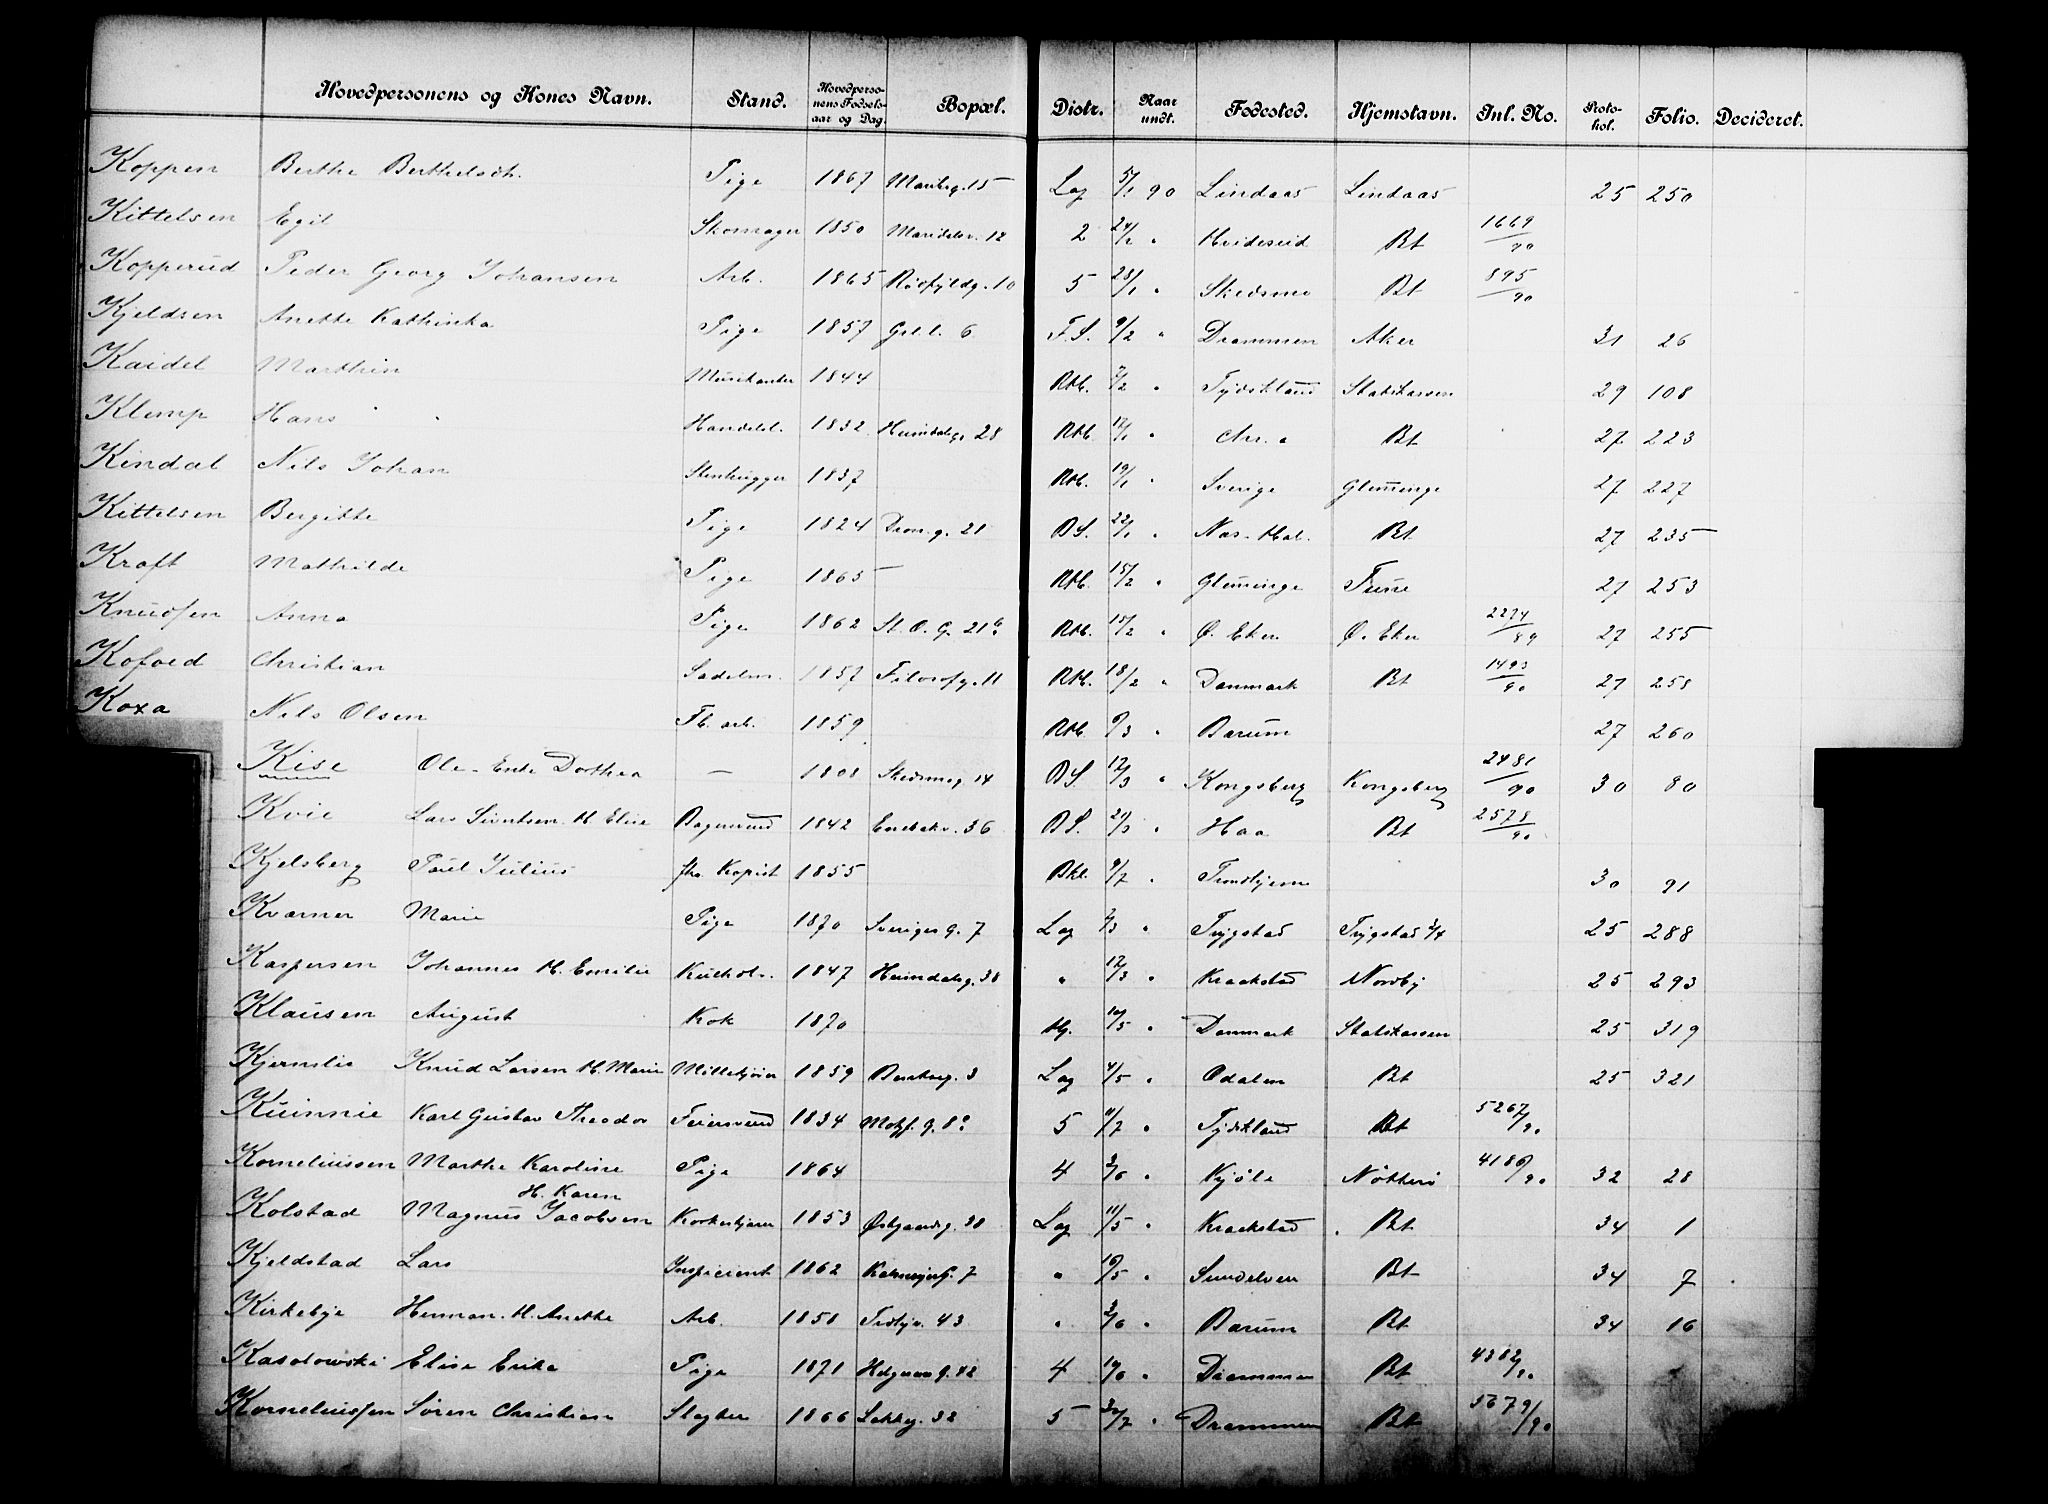 Hovedpersonens og Kones Navn. Stand. Hovedpersonens Fødselsaar og Dag. Bopæl. Distr. Naar undt. Fødested. Hjemstavn. Inl. No. Protokol. Folio. Decideret.
Koppen Berthe Berthelsdt. Pige 1867 Maribg. 15 Lag 5/1 90 Lindaas Lindaas 25 250
Kittelsen Egil Skomager 1850 Maridalsv. 12 2 24/2 " Hvideseid Bt 1669/90
Kopperud Peder Georg Johansen Arb. 1865 Rødfyldg. 10 5 28/1 " Skedsmo Bt 895/90
Kjeldsen Anette Kathinka Pige 1857 Grl. l. 6 F.S. 9/2 " Drammen Aker 31 26
Kaidel Marthin Musikanter 1844 Rtb. 7/2 " Tydskland Statskassen 29 108
Klemp Hans Handelsl. 1832 Heimdalsg. 28 Rtb. 12/1 " Chr.a Bt 27 223
Kindal Nils Johan Stenhugger 1837 Rtb. 19/1 " Sverige Glemminge 27 227
Kittelsen Bergitte Pige 1824 Dron. g. 21 BS. 22/1 " Næs. Hal. Bt 27 235
Kraft Mathilde Pige 1865 Rtb. 15/2 " Glemminge Tune 27 253
Knudsen Anna Pige 1862 St. O. G. 21 b Rtb. 15/2 " Ø. Eker Ø. Eker 2274/89 27 255
Kofoed Christian Sadelm. 1857 Filosofg. 11 Rtb. 18/2 " Danmark Bt 1493/90 27 258
Koxa Nils Olsen Fb. arb. 1859 Rtb. 6/3 " Bærum 27 260
Kise Ole. Enke Dorthea — 1808 Skedsmog. 14 BS. 12/3 " Kongsberg Kongsberg 2481/90 30 80
Kvie Lars Sivertsen H. Elise Bogmand 1842 Enebakv. 36 BS. 20/3 " Haa Bt 2578/90
Kjelsberg Paul Julius fhv. Kopist 1855 Bkl. 9/7 " Trondhjem 30 91
Kværner Marie Pige 1870 Sveriges g. 7 Lag 7/3 " Trygstad Trygstad 3/4 25 288
Kaspersen Johannes H. Emilie Kulholr. 1847 Heimdalsg. 38 " 12/3 " Kraakstad Nordby 25 293
Klausen August Kok 1870 Hj. 10/5 " Danmark Statskassen 25 319
Kjernlie Knud Larsen H. Marie Møllekjører 1859 Bentseg. 3 Lag 4/5 " Odalen Bt 25 321
Kuinnie Karl Gustav Theodor Feiersvend 1834 Motzf. g. 8 a 5 11/7 " Tydskland Bt 5267/90
Korneliussen Marthe Karoline Pige 1864 4 3/6 " Kjøle Nøtterø 4186/90 32 28
H. Karen
Kolstad Magnus Jacobsen Korkeskjærer 1853 Østgaardsg. 30 Lag 11/5 " Kraakstad Bt 34 1
Kjeldstad Lars Inspicient 1862 7 " 10/5 " Sundelven Bt 34 7
Kirkebye Herman. H. Anette Arb. 1858 Trondhjv. 43 " 3/6 " Bærum Bt 34 16
Kasolowski Elise Erika Pige 1871 Helgesens g. 42 4 10/6 " Drammen Bt 4382/90
Korneliussen Søren Christian Slagter 1866 Lakkeg. 32 5 30/7 " Drammen Bt 5679/90